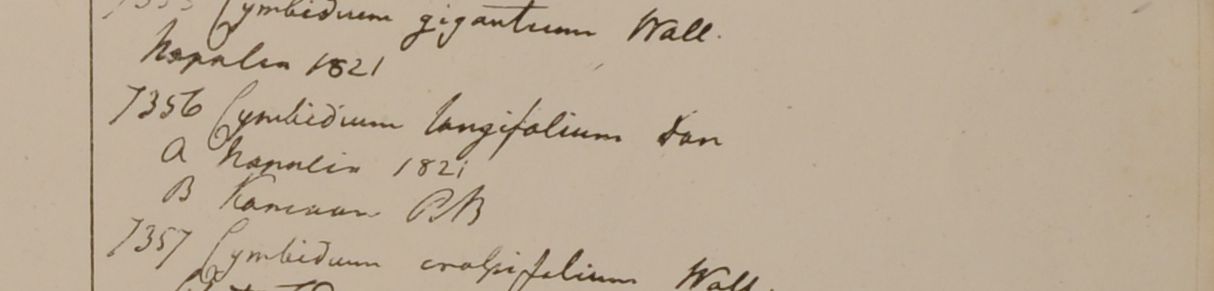 7355 Cymbidium giganteum Wall.
Napalia 1821
7356 Cymbidium longifolium Don
a Napalia 1821
B Kamaon RB
7357 Cymbidium crassifolium Wall.